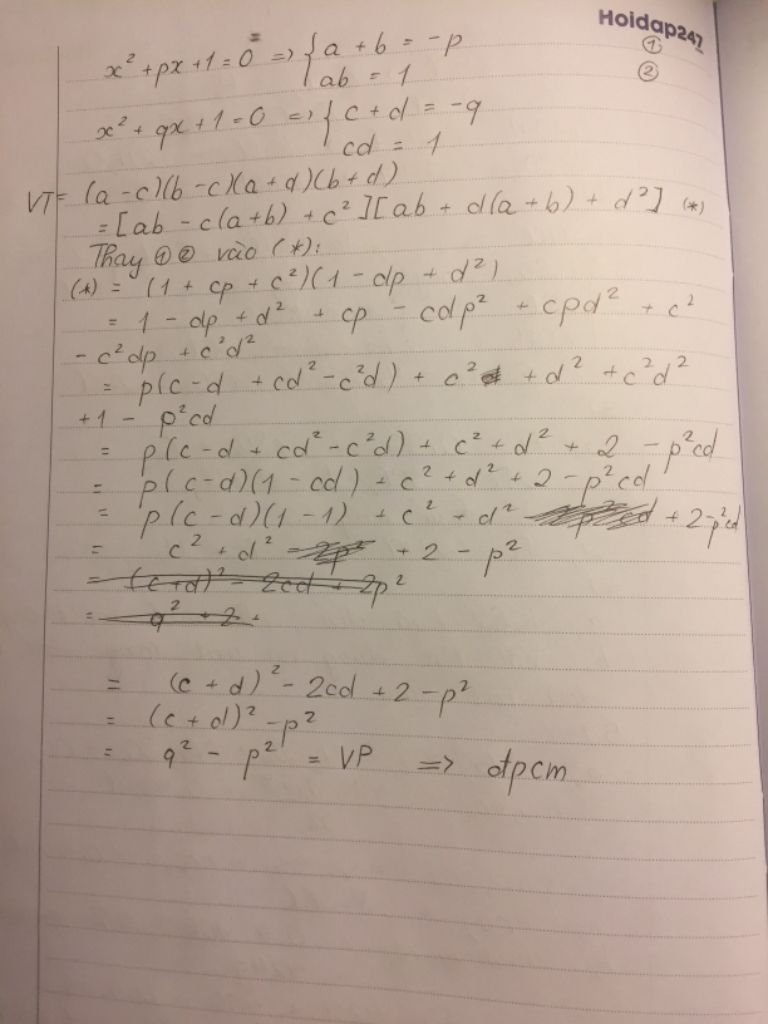 Hoidap247
x² + px + 1 = 0 => { a + b = -p ①
ab = 1 ②
x² + qx + 1 = 0 => { c + d = -q
cd = 1
VT = (a - c)(b - c)(a + d)(b + d)
= [ab - c(a+b) + c²][ab + d(a+b) + d²] (*)
Thay ① ② vào (*):
(*) = (1 + cp + c²)(1 - dp + d²)
= 1 - dp + d² + cp - cdp² + cpd² + c²
- c²dp + c²d²
= p(c - d + cd² - c²d) + c² + d² + c²d²
+1 - p²cd
= p(c - d + cd² - c²d) + c² + d² + 2 - p²cd
= p(c - d)(1 - cd) + c² + d² + 2 - p²cd
= p(c - d)(1 - 1) + c² + d² + 2 - p²cd
= c² + d² + 2 - p²
= (c + d)² - 2cd + 2p²
= q² + 2 +
= (c + d)² - 2cd + 2 - p²
= (c + d)² - p²
= q² - p² = VP => đpcm